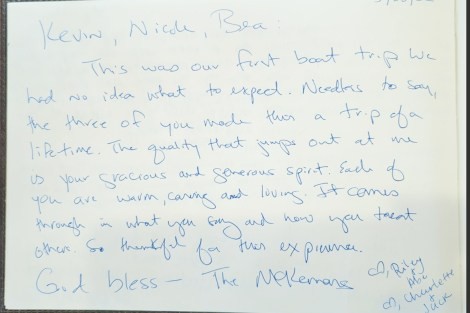 Kevin, Nicole, Bea:
This was our first boat trip. We
had no idea what to expect. Needless to say,
the three of you made this a trip of a
lifetime. The quality that jumps out at me
is your gracious and generous spirit. Each of
you are warm, caring and loving. It comes
through in what you say and how you treat
others. So thankful for this experience.
God bless — The McKernans
♡, Riley
Abi
+
♡, Charlotte
+
Jack